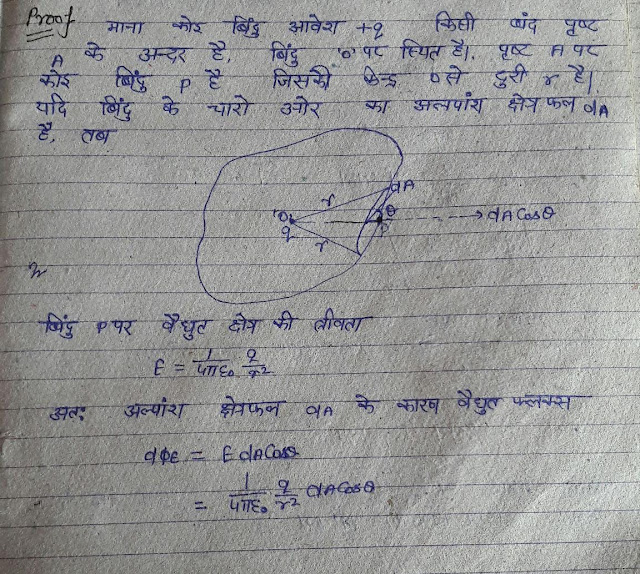 Proof माना कोई बिंदु आवेश +q किसी बंद पृष्ट
A के अन्दर है, बिंदु 'o' पर स्थित है। पृष्ट A पर
कोई बिंदु P है जिसकी केन्द्र O से दुरी r है।
यदि बिंदु के चारो ओर का अल्पांश क्षेत्रफल dA
है, तब
dA
r
'O'
q
θ
P
→dACosθ
r
बिंदु P पर वैधुत क्षेत्र की तीव्रता
E = 1/4πε₀ q/r²
अतः अल्पांश क्षेत्रफल dA के कारण वैधुत फ्लक्स
dΦE = E dACosθ
= 1/4πε₀ q/r² dACosθ